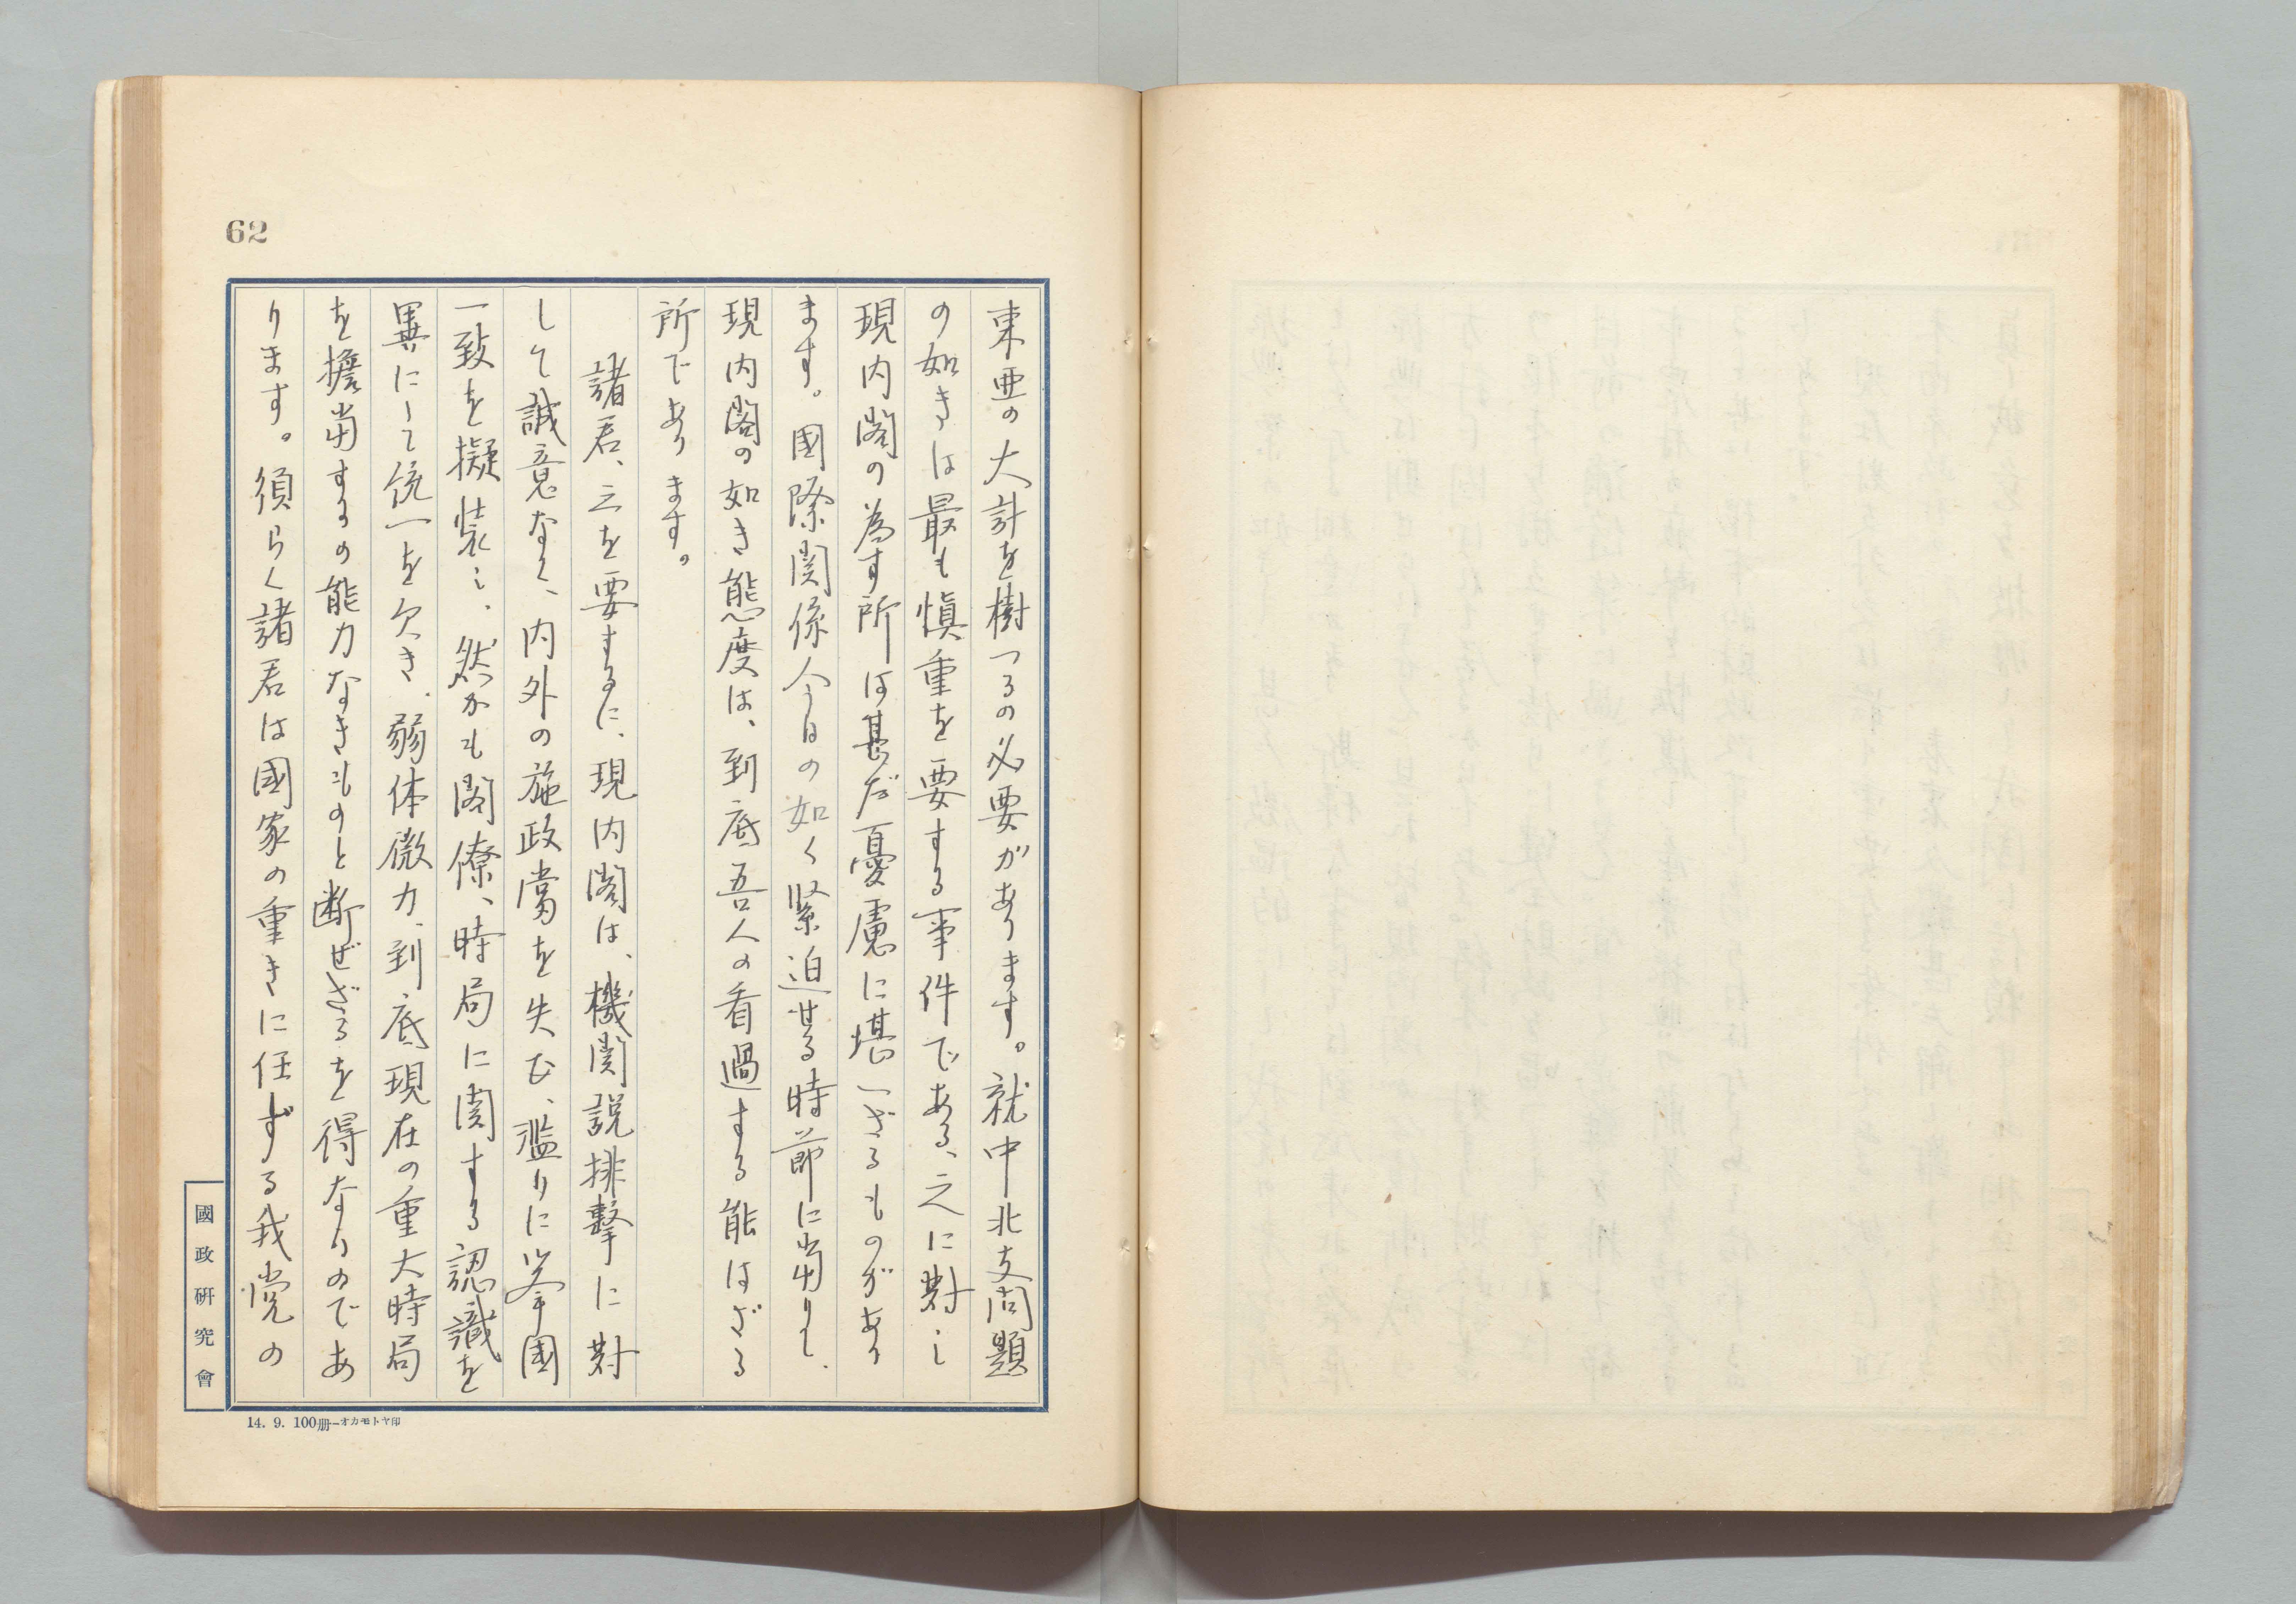 62
東亜の大計を樹つるの必要があります。就中北支問題
の如きは最も愼重を要する事件である、之に對し
現内閣の為す所は甚だ憂慮に堪へざるものがあり
ます。國際関係今日の如く緊迫せる時節に當りて、
現内閣の如き態度は、到底吾人の看過する能はざる
所であります。
諸君、之を要するに、現内閣は、機関説排撃に對
して誠意なく、内外の施政當を失し、濫りに挙國
一致を擬装し、然かも閣僚、時局に関する認識を
異にして統一を欠き、弱体微力、到底現在の重大時局
を擔當するの能力なきものと断ぜざるを得ないのであ
ります。須らく諸君は國家の重きに任ずる我党の
國政研究會
14. 9. 100册—オカモトヤ印